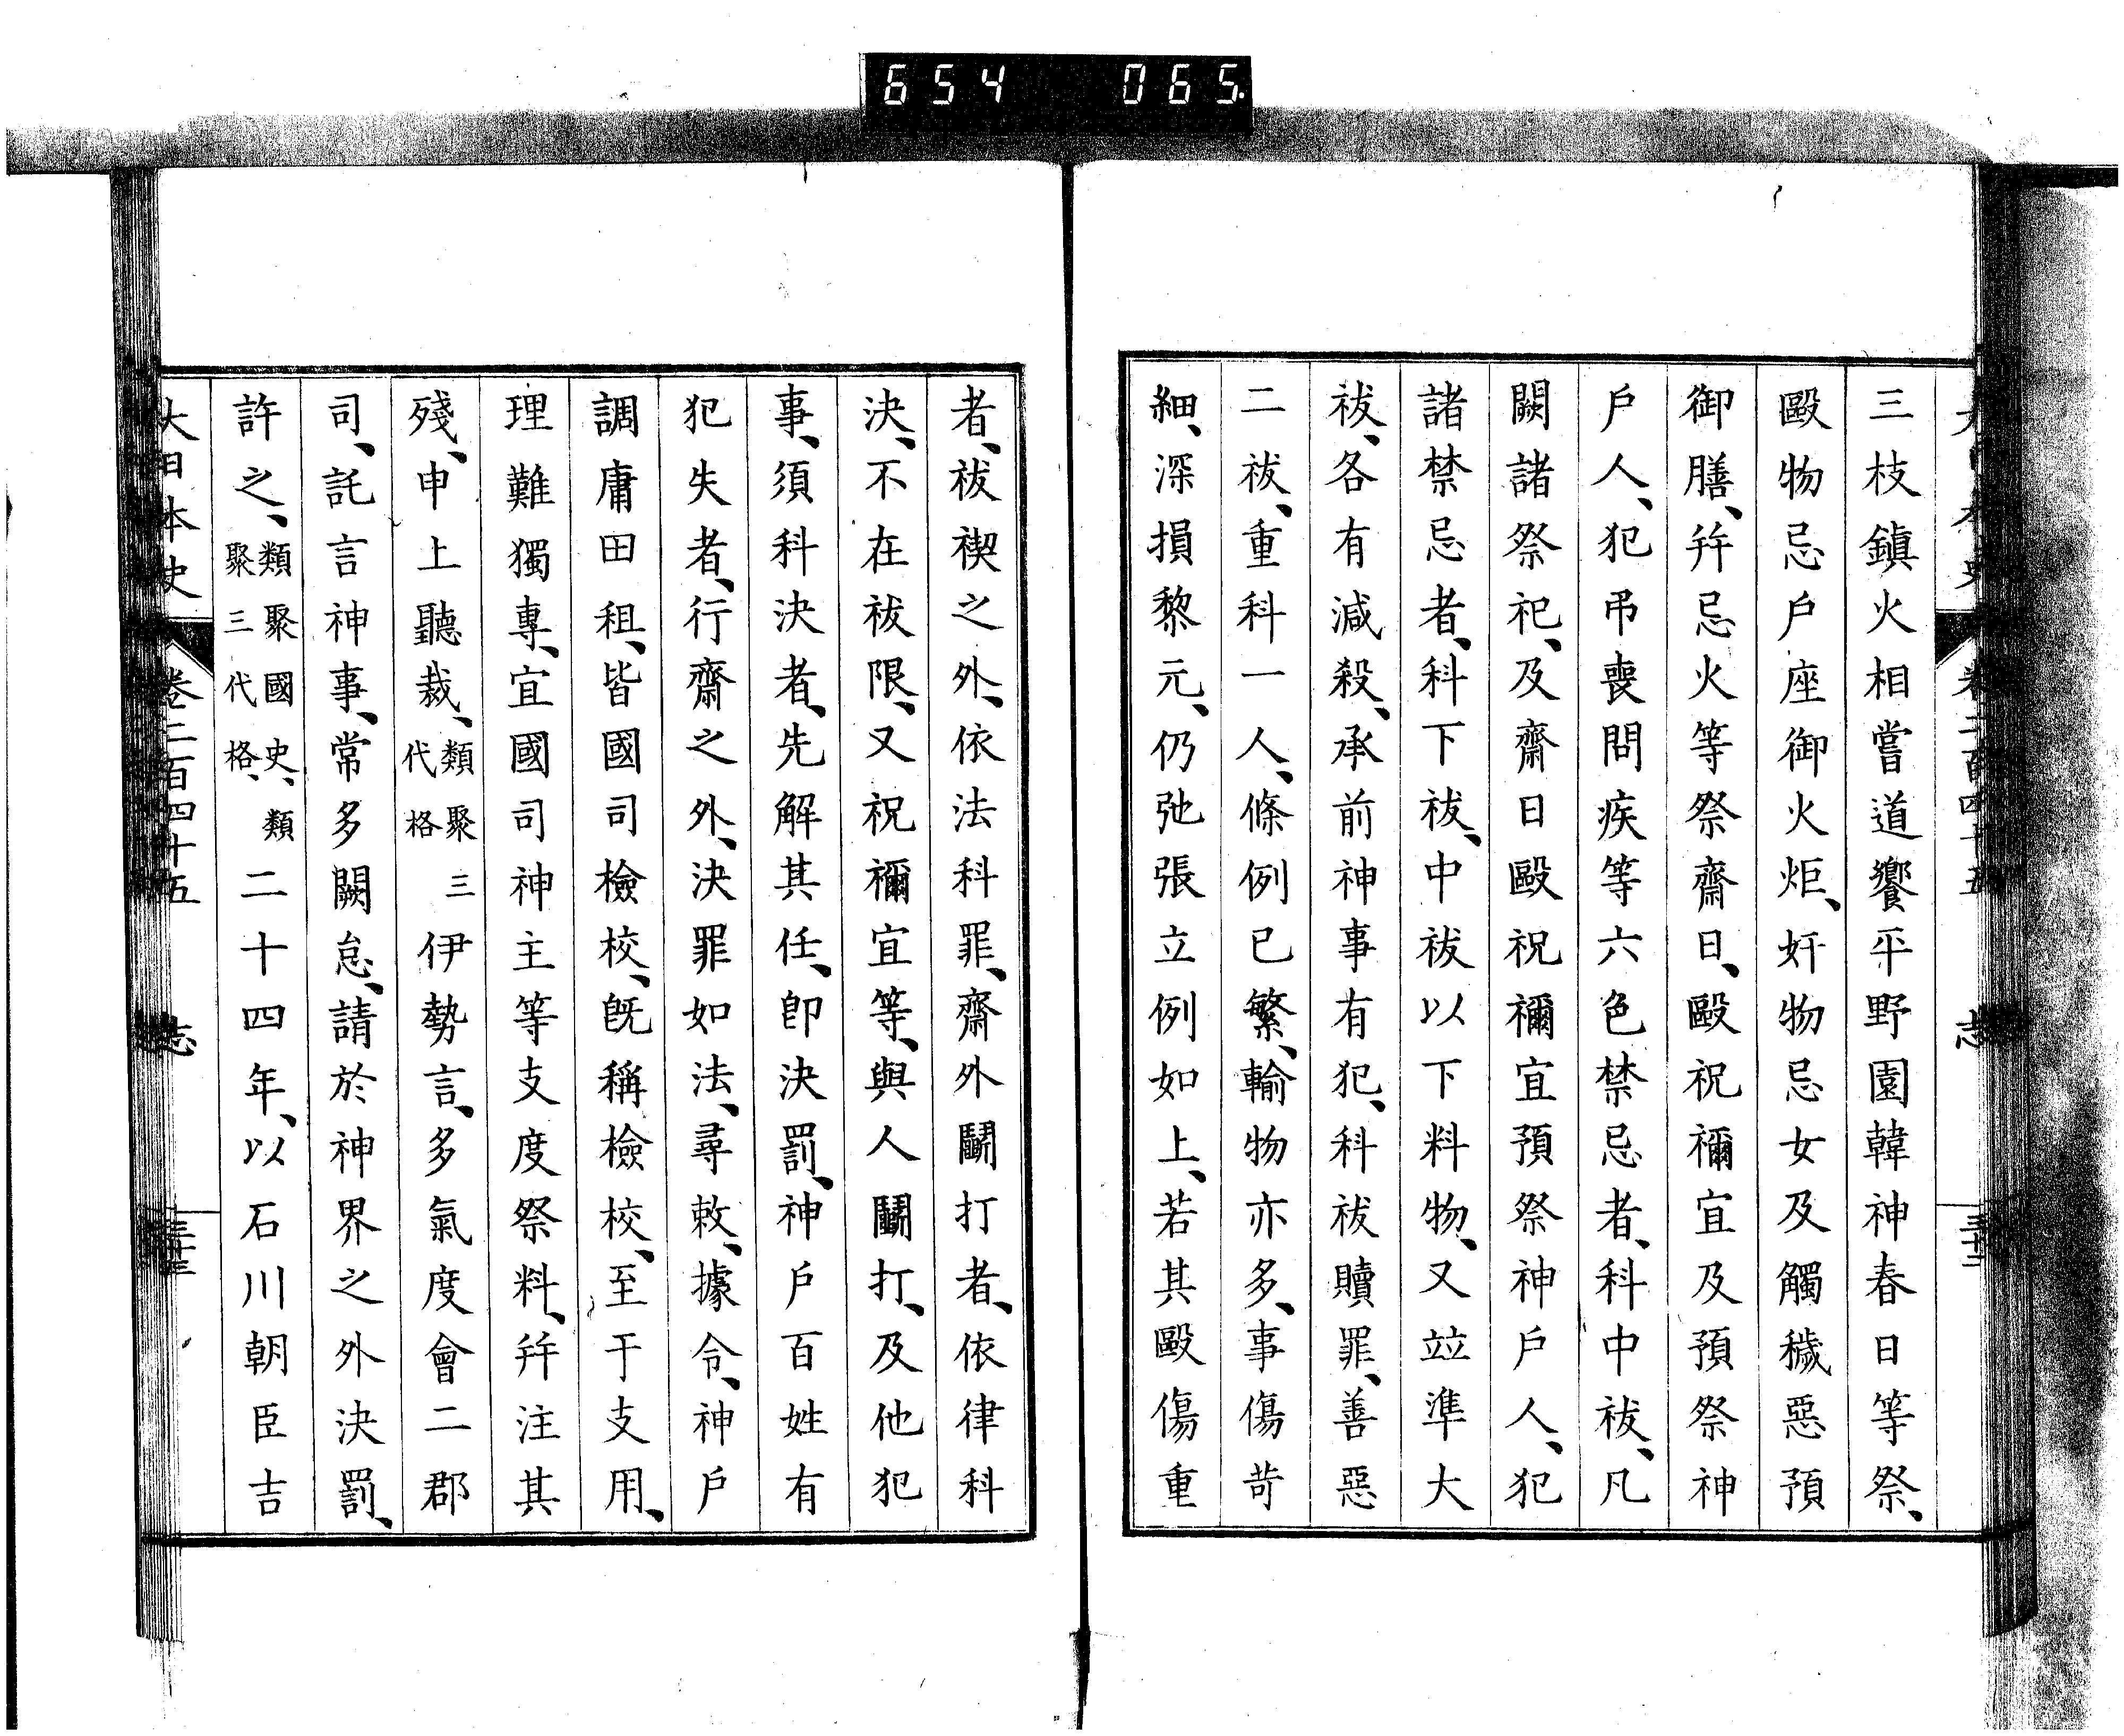 654 065
三枝鎮火相嘗道饗平野園韓神春日等祭、
毆物忌戶座御火炬、奸物忌女及觸穢惡預
御膳、幷忌火等祭齋日、毆祝禰宜及預祭神
戶人、犯弔喪問疾等六色禁忌者、科中祓、凡
闕諸祭祀、及齋日毆祝禰宜預祭神戶人、犯
諸禁忌者、科下祓、中祓以下料物、又竝準大
祓、各有減殺、承前神事有犯、科祓贖罪、善惡
二祓、重科一人、條例已繁、輸物亦多、事傷苛
細、深損黎元、仍弛張立例如上、若其毆傷重
者、祓禊之外、依法科罪、齋外鬭打者、依律科
決、不在祓限、又祝禰宜等、與人鬭打、及他犯
事、須科決者、先解其任、卽決罰、神戶百姓有
犯失者、行齋之外、決罪如法、尋敕、據令、神戶
調庸田租、皆國司檢校、旣稱檢校、至于支用、
理難獨專、宜國司神主等支度祭料、幷注其
殘、申上聽裁、類聚三代格伊勢言、多氣度會二郡
司、託言神事、常多闕怠、請於神界之外決罰、
許之、類聚國史、類聚三代格、二十四年、以石川朝臣吉
大日本史 卷二百四十五 志